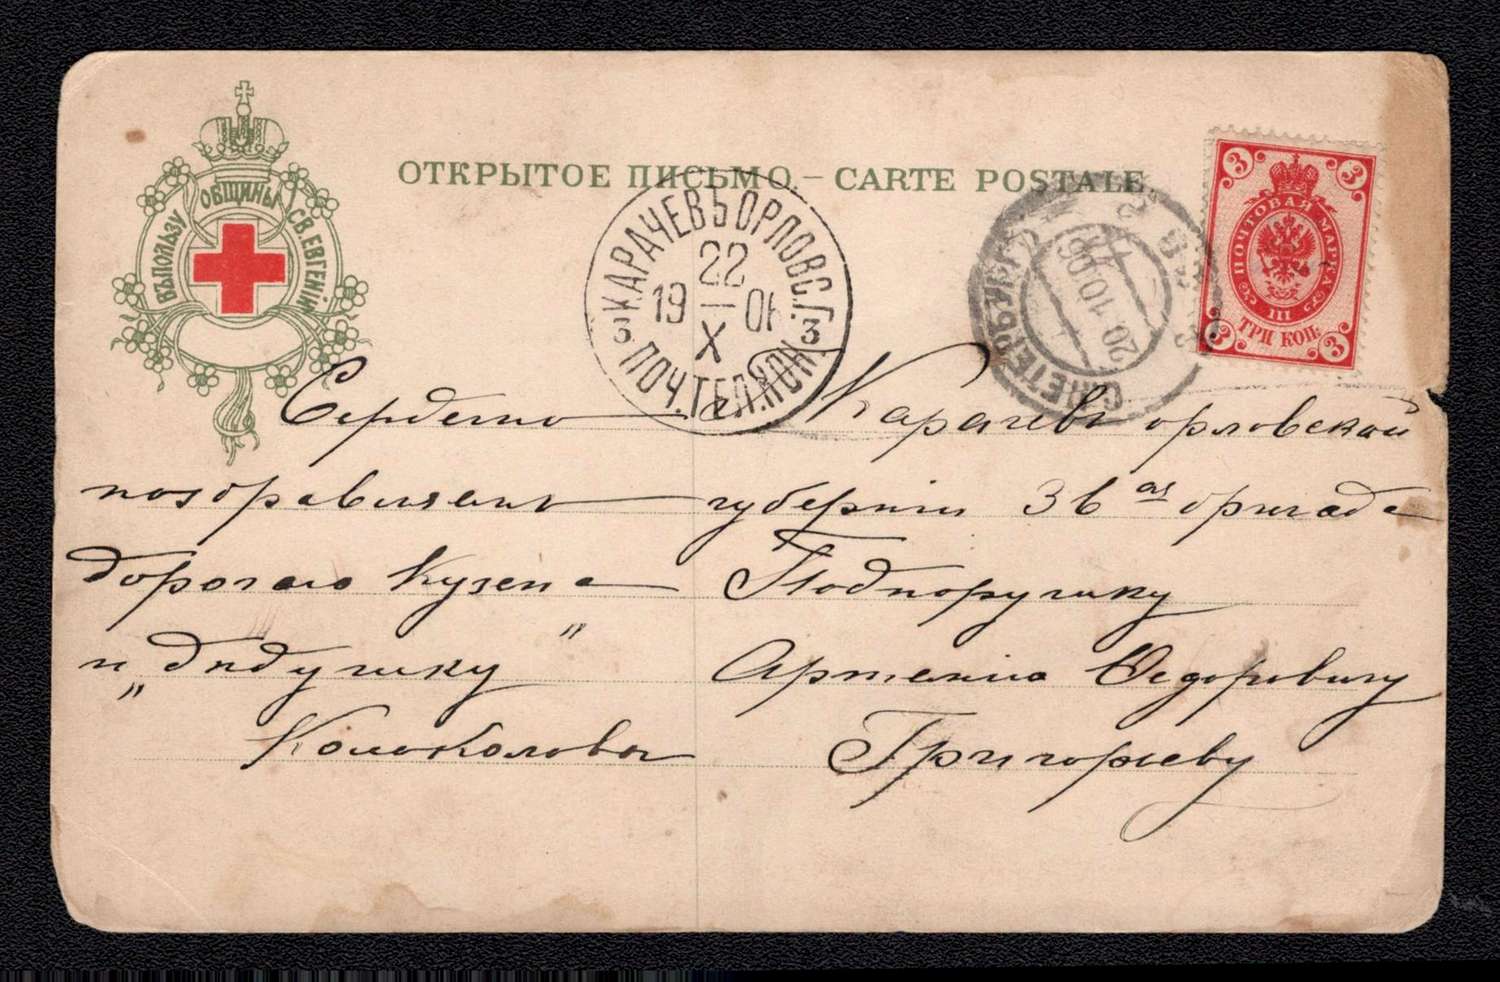 ОТКРЫТОЕ ПИСЬМО. — CARTE POSTALE
ВЪ ПОЛЬЗУ ОБЩИНЫ СВ. ЕВГЕНІИ
КАРАЧЕВЪ ОРЛОВС. Г.
22
19 — 06
X
3 3
ПОЧ. ТЕЛ. КОН.
С. ПЕТЕРБУРГЪ
20.10.06
3 3
ПОЧТОВАЯ МАРКА
III
ТРИ КОП.
3 3
Сердечно
поздравляемъ
дорогаго Кузена
и „дядушку"
Колоколовы
г. Карачевъ орловской
губерніи 36ая бригада
Подпоручику
Артемію Ѳедоровичу
Григорьеву